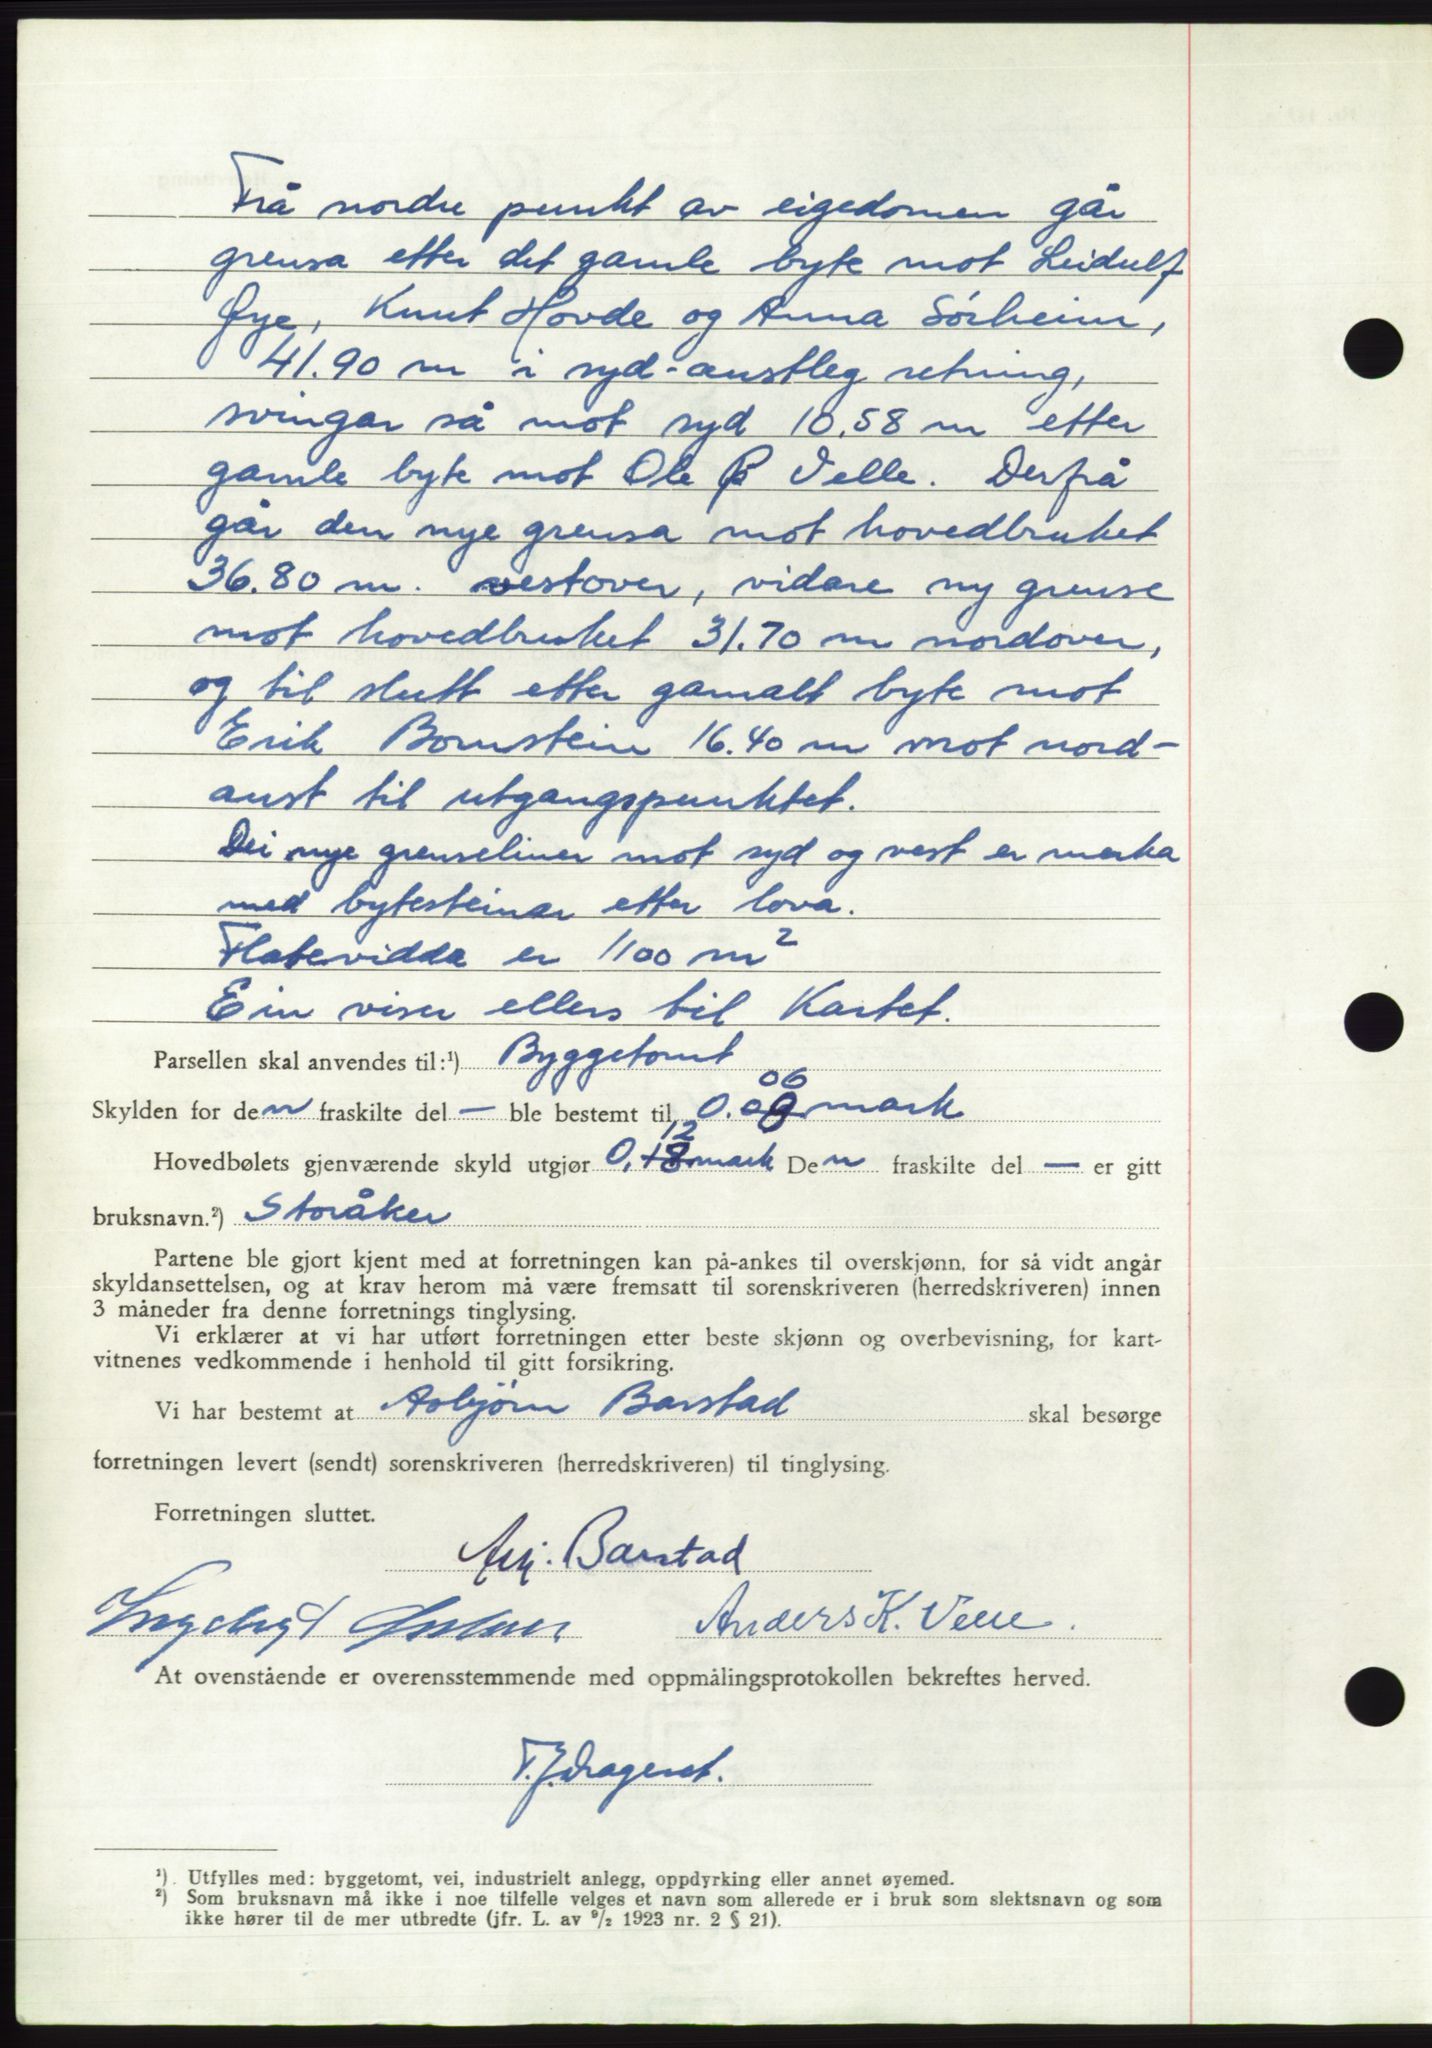 Frå nordre punkt av eigedomen går
grensa etter det gamle byte mot Leidulf
Øye, Knut Hovde og Anna Sørheim,
41.90 m i syd-austleg retning,
svingar så mot syd 10.58 m etter
gamle byte mot Ole P Velle. Derfrå
går den nye grensa mot hovedbruket
36.80 m. vestover, vidare ny grense
mot hovedbruket 31.70 m nordover,
og til slutt etter gamalt byte mot
Erik Bornstein 16.40 m mot nord-
aust til utgangspunktet.
Dei nye grenseliner mot syd og vest er merka
med bytesteinar etter lova.
Flatevidda er 1100 m²
Ein viser ellers til Kartet.
Parsellen skal anvendes til:¹) Byggetomt
06
Skylden for den fraskilte del — ble bestemt til 0.09 mark
12
Hovedbølets gjenværende skyld utgjør 0,18 mark Den fraskilte del — er gitt
bruksnavn.²) Storåker
Partene ble gjort kjent med at forretningen kan på-ankes til overskjønn, for så vidt angår
skyldansettelsen, og at krav herom må være fremsatt til sorenskriveren (herredskriveren) innen
3 måneder fra denne forretnings tinglysing.
Vi erklærer at vi har utført forretningen etter beste skjønn og overbevisning, for kart-
vitnenes vedkommende i henhold til gitt forsikring.
Vi har bestemt at Asbjørn Barstad skal besørge
forretningen levert (sendt) sorenskriveren (herredskriveren) til tinglysing.
Forretningen sluttet.
Asbj. Barstad
Anders K. Velle.
At ovenstående er overensstemmende med oppmålingsprotokollen bekreftes herved.
¹) Utfylles med: byggetomt, vei, industrielt anlegg, oppdyrking eller annet øyemed.
²) Som bruksnavn må ikke i noe tilfelle velges et navn som allerede er i bruk som slektsnavn og som
ikke hører til de mer utbredte (jfr. L. av ⁹/₂ 1923 nr. 2 § 21).